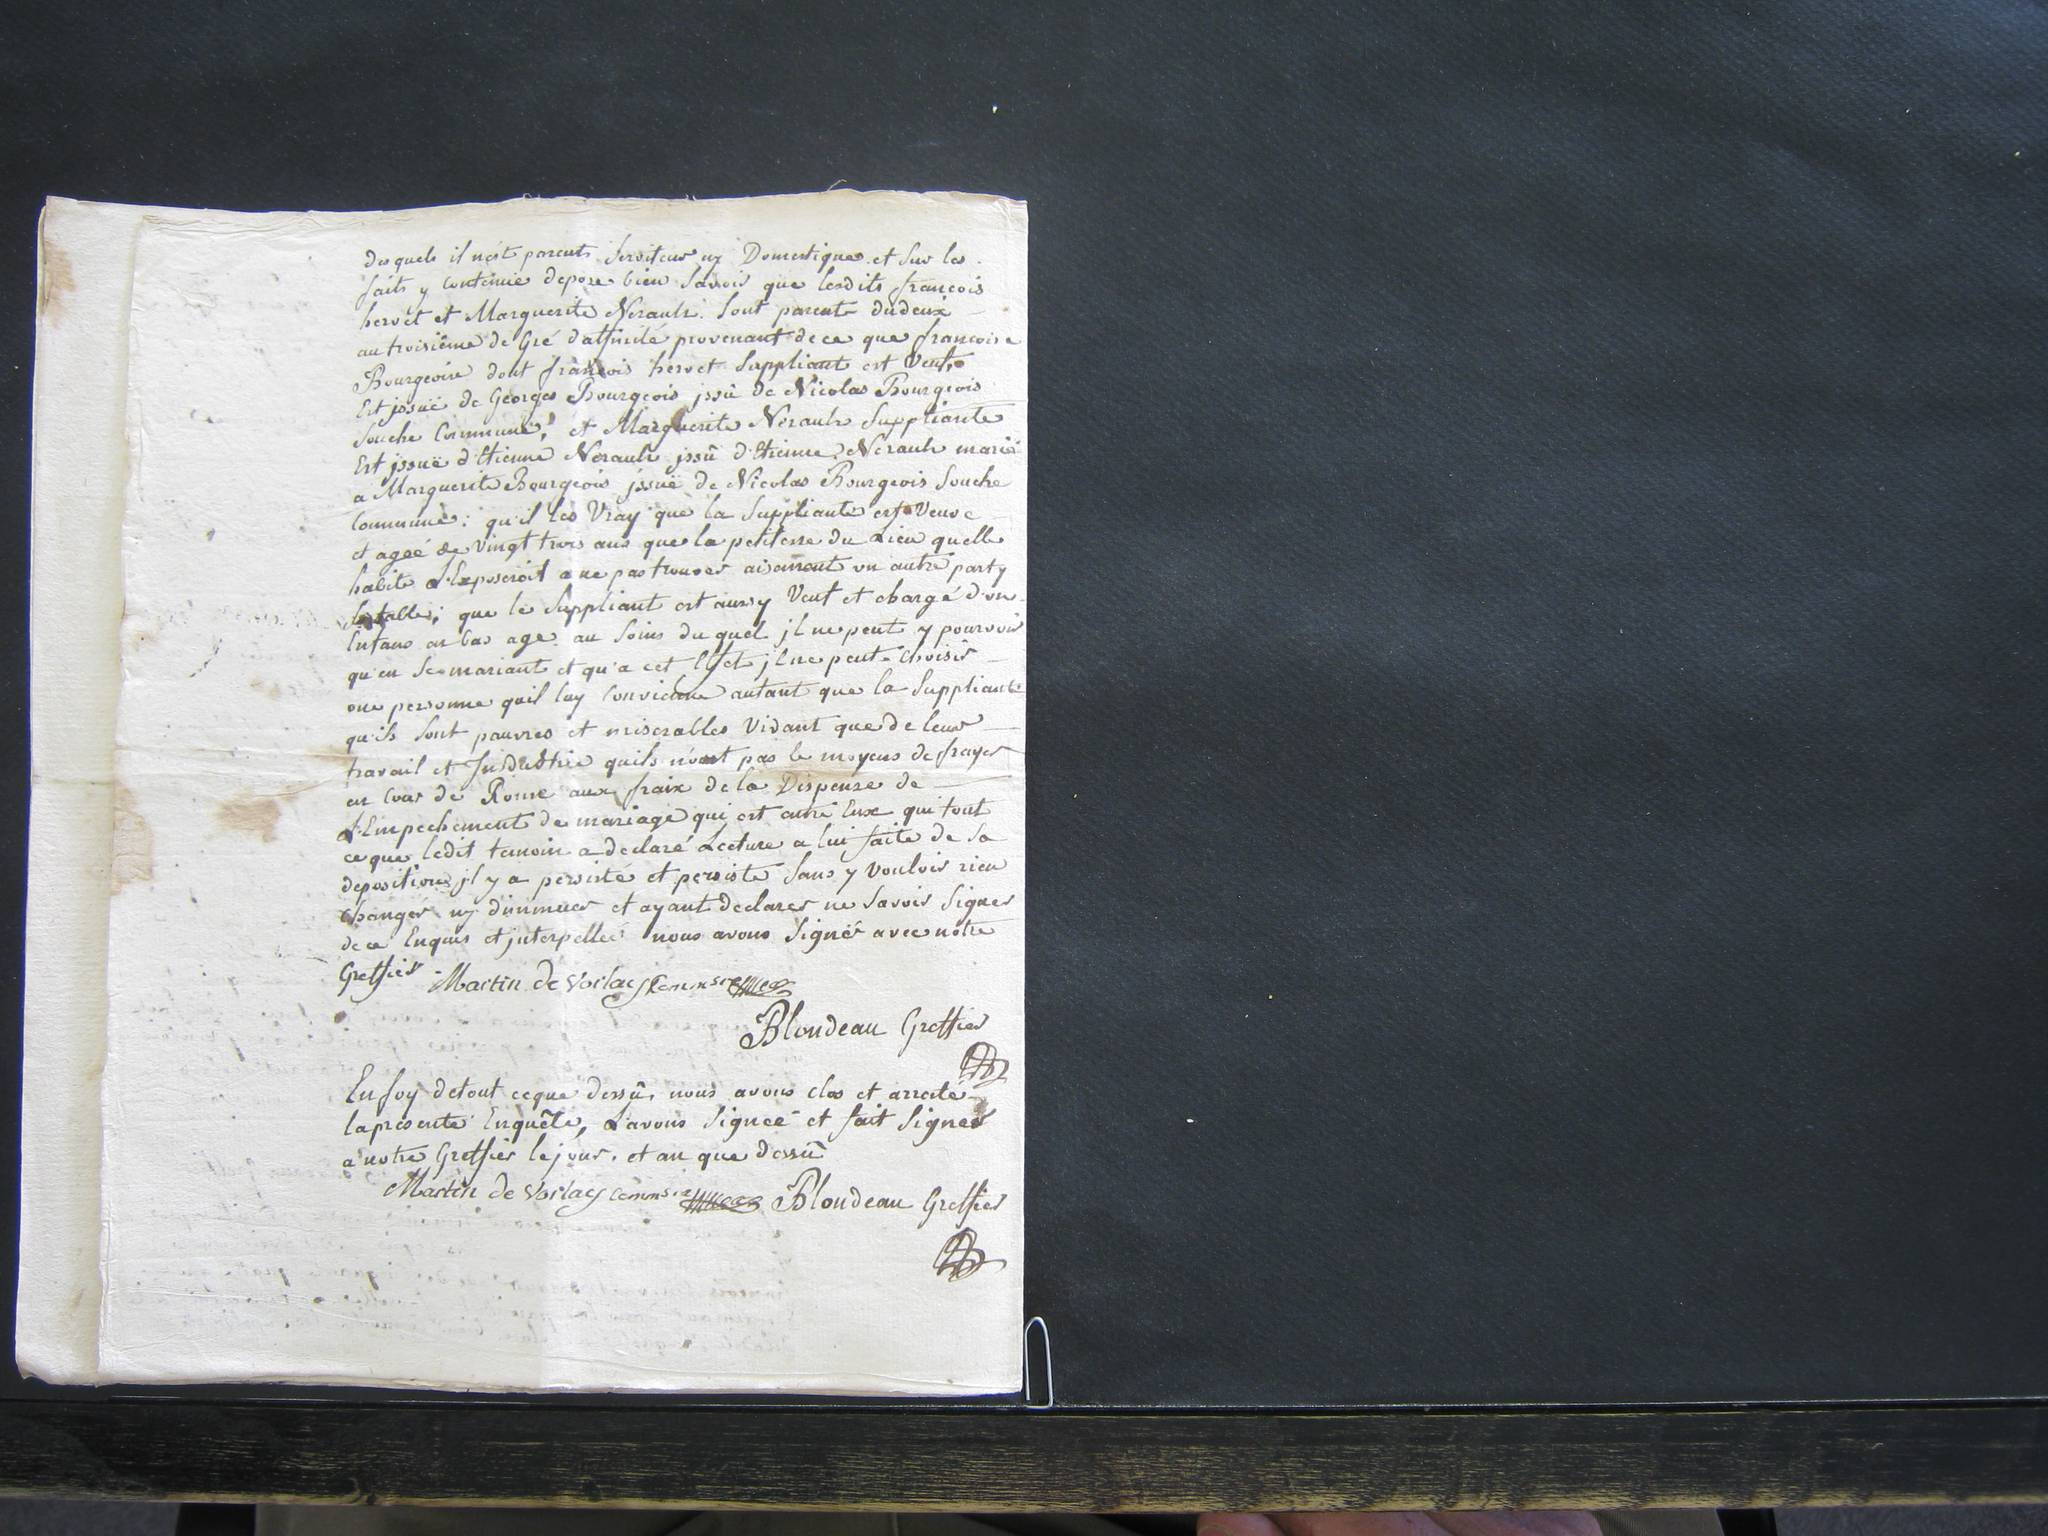 desquels il n'est parents Serviteur ny Domestiques et Sur les
faits y contenüe depose bien Savoir que lesdits françois
hervèt et Marguerite Nérault Sont parents dudeux
au troisième de Gré d'affinité provenant de ce que francoise
Bourgeoise dont françois hervet Suppliant est Veuf,
Est jssuë de Georges Bourgeois jssü de Nicolas Bourgeois
Souche Commune, et Marguerite Nérault Suppliante
Est jssuë d'Etienne Nérault jssü d'Etienne Nérault marié
a Marguerite Bourgeois jssuë de Nicolas Bourgeois Souche
Commune; qu'il Est Vray que la Suppliante est Veuve
et ageé de Vingt trois ans que la petitesse du Lieu quelle
habite L'Exposeroit a ne pas trouver aisement un autre party
que le Suppliant est aussy Veuf et chargé d'un
Enfans en bas age au Soins du quel jl ne peut y pourvoir
qu'en Se mariant et qu'a cet Effet jl ne peut Choisir
une personne quil luy Convienne autant que la Suppliante
qu'ils Sont pauvres et miserables Vivant que de leur
travail et Industrie quils n'ont pas le moyens de frayer
en Cour de Rome aux fraix de la Dispense de
L'Empechement de mariage qui est entre Eux qui tout
ce que ledit temoin a declaré Lecture a lui faite de Sa
deposition jl y a persisté et persiste Sans y Vouloir rien
Changer ny diminuer et ayant declarer ne Savoir Signer
de ce Enquis et jnterpellé nous avons Signér avec notre
Greffier Martin de Vorlay Commsre
Blondeau Greffier
En foy de tout ceque dessü, nous avons clos et arresté
la presente Enquête, L'avons Signeé et fait Signer
a notre Greffier le jour, et an que dessü
Martin de Vorlay Commsre Blondeau Greffier